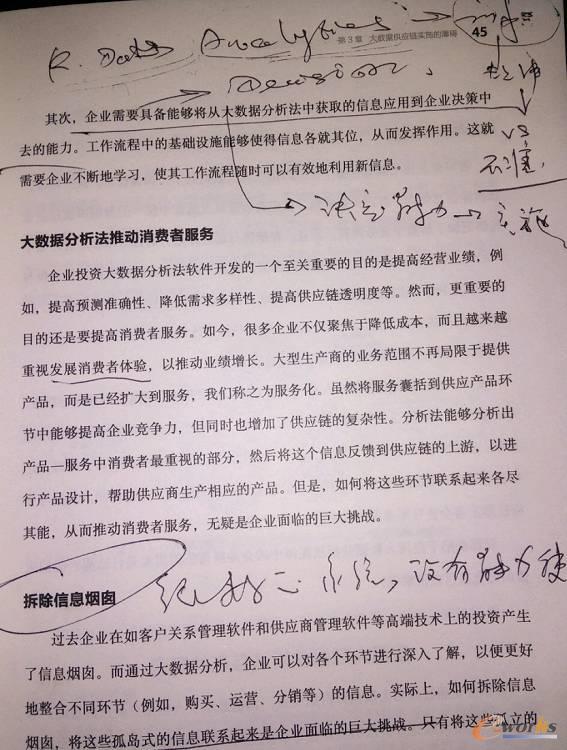 R. Data Analytics →
第3章 大数据供应链实施的障碍 45
Decision
其次，企业需要具备能够将从大数据分析法中获取的信息应用到企业决策中
去的能力。工作流程中的基础设施能够使得信息各就其位，从而发挥作用。这就
需要企业不断地学习，使其工作流程随时可以有效地利用新信息。
VS
→ 决定能力 → 实施
大数据分析法推动消费者服务
企业投资大数据分析法软件开发的一个至关重要的目的是提高经营业绩，例
如，提高预测准确性、降低需求多样性、提高供应链透明度等。然而，更重要的
目的还是要提高消费者服务。如今，很多企业不仅聚焦于降低成本，而且越来越
重视发展消费者体验，以推动业绩增长。大型生产商的业务范围不再局限于提供
产品，而是已经扩大到服务，我们称之为服务化。虽然将服务囊括到供应产品环
节中能够提高企业竞争力，但同时也增加了供应链的复杂性。分析法能够分析出
产品—服务中消费者最重视的部分，然后将这个信息反馈到供应链的上游，以进
行产品设计，帮助供应商生产相应的产品。但是，如何将这些环节联系起来各尽
其能，从而推动消费者服务，无疑是企业面临的巨大挑战。
系统，没有能力使
拆除信息烟囱
过去企业在如客户关系管理软件和供应商管理软件等高端技术上的投资产生
了信息烟囱。而通过大数据分析，企业可以对各个环节进行深入了解，以便更好
地整合不同环节（例如，购买、运营、分销等）的信息。实际上，如何拆除信息
烟囱，将这些孤岛式的信息联系起来是企业面临的巨大挑战。只有将这些孤立的
e-works